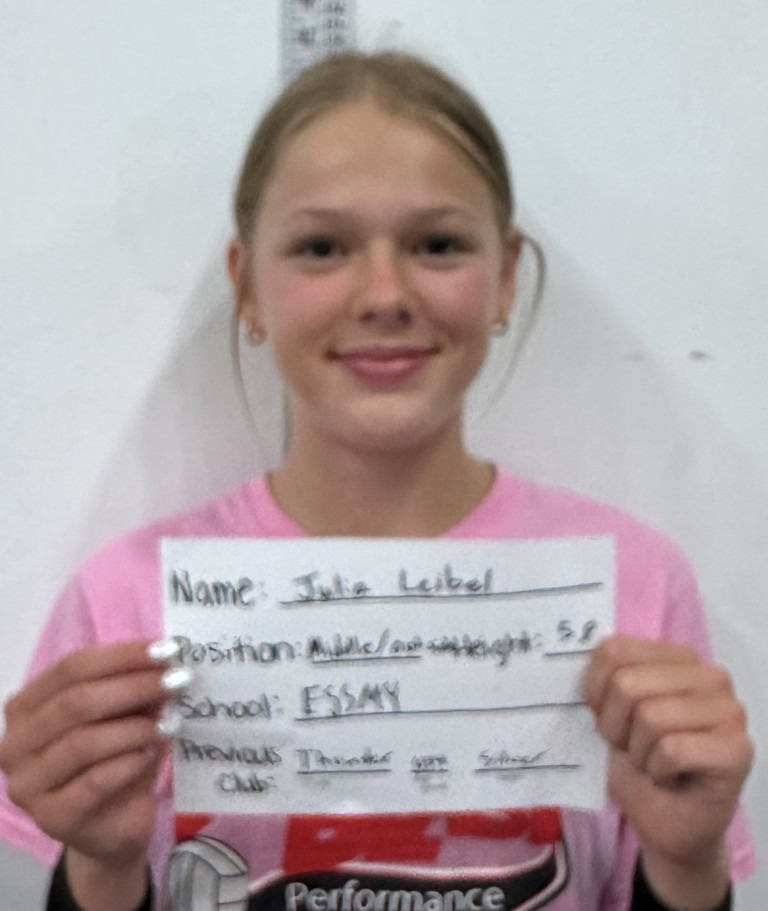 Name: Julia Leibel
Position: Middle/ Height: 5'8
School: ESSMY
Previous Thunder Silver
Club:
Performance